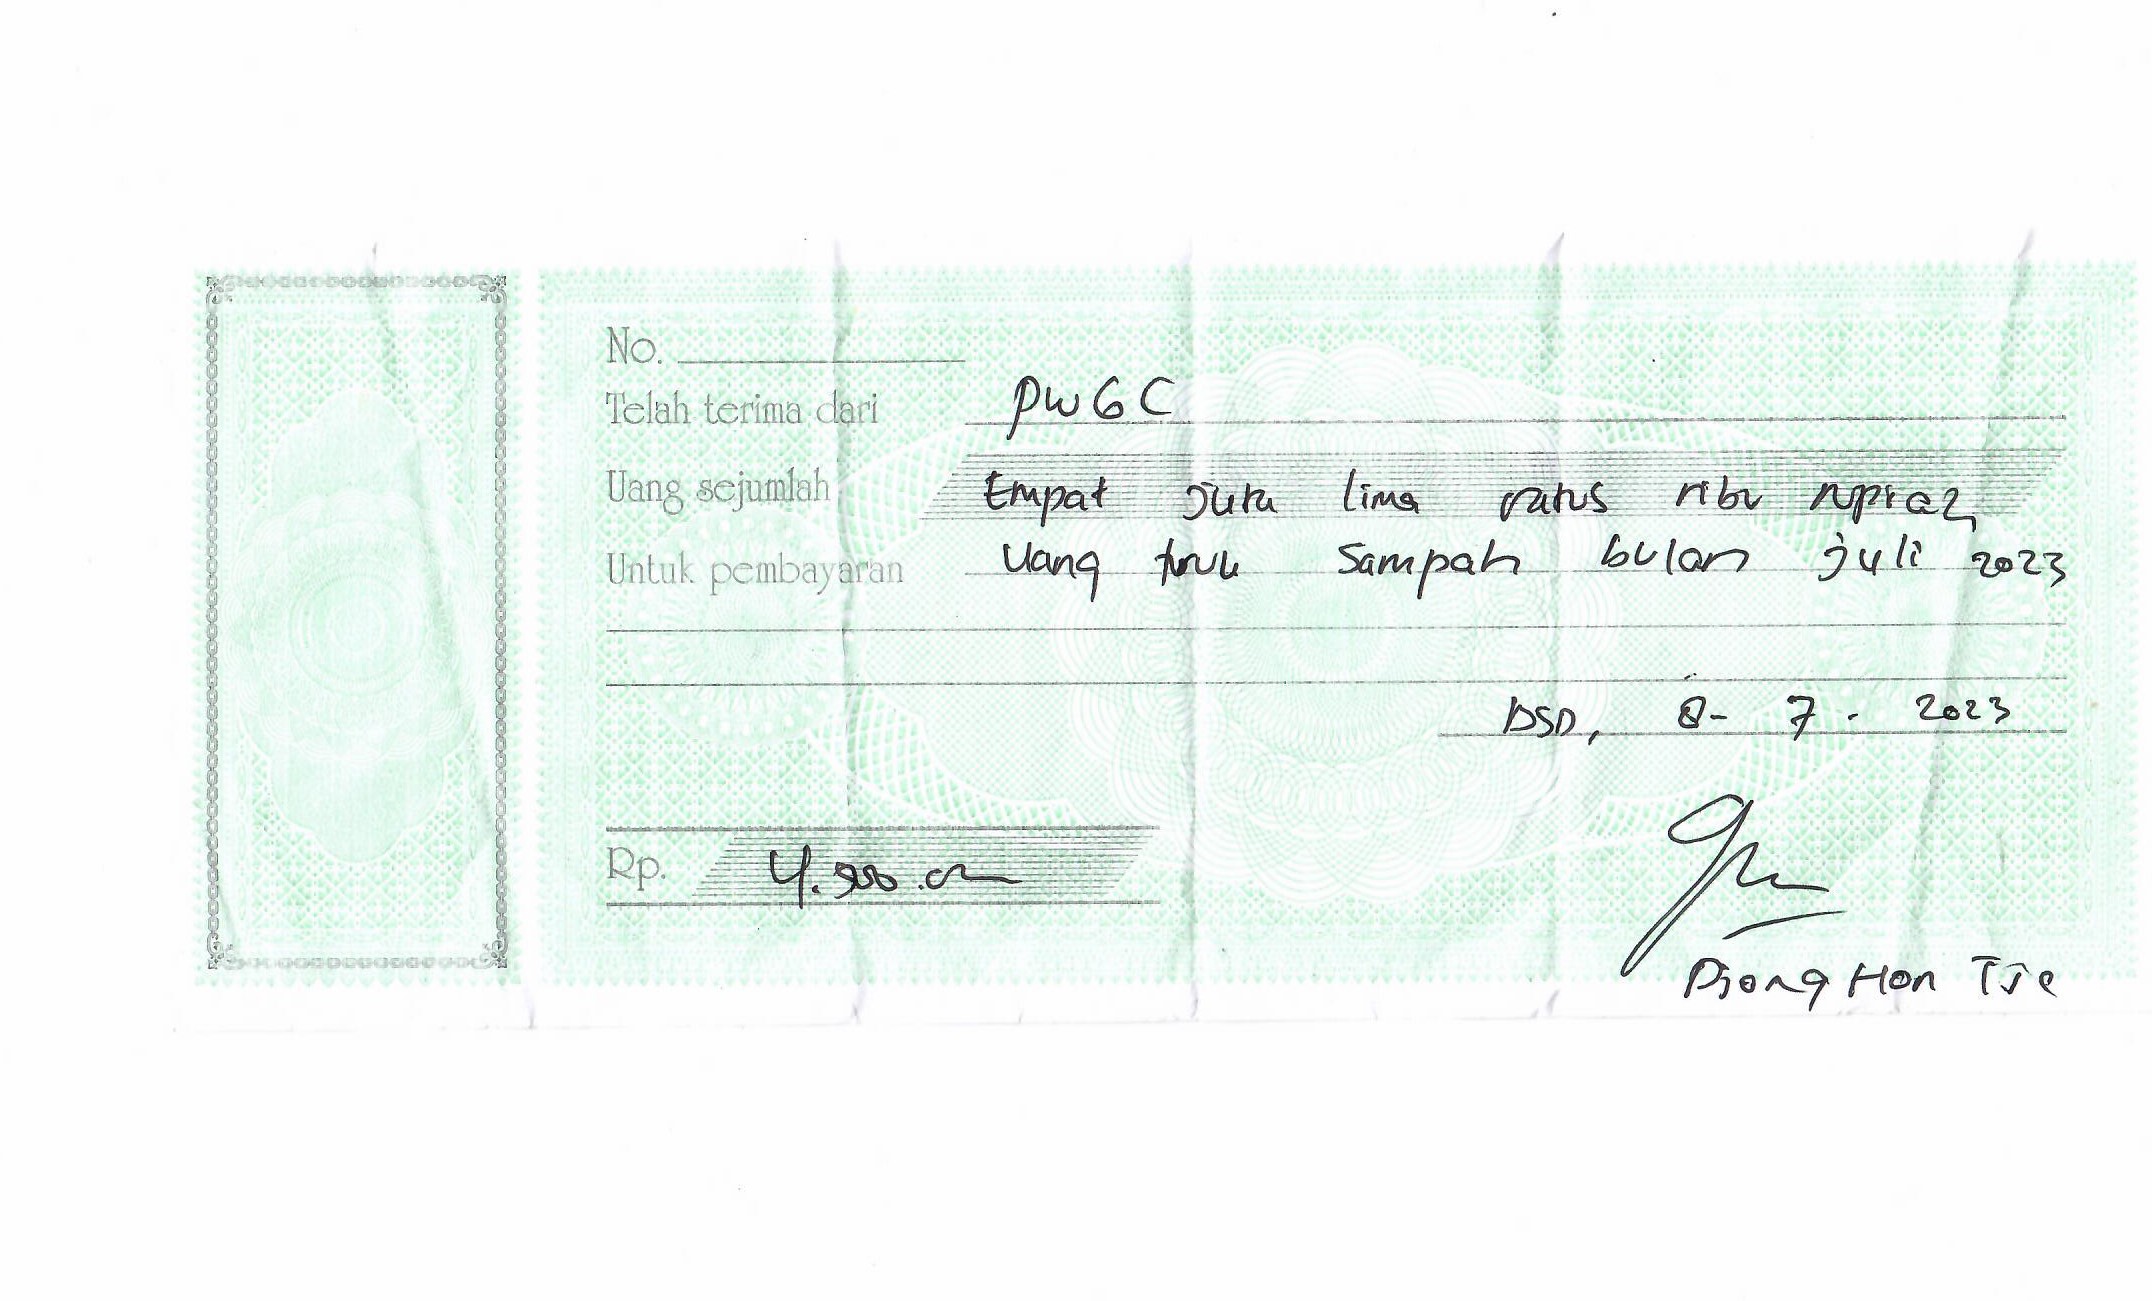 No.
Telah terima dari PWGC
Uang sejumlah Empat juta lima ratus ribu rupiah
Untuk pembayaran Uang truk Sampah bulan juli 2023
BSD, 8 - 7 - 2023
Rp. 4.500.000
Djong Hon Tje